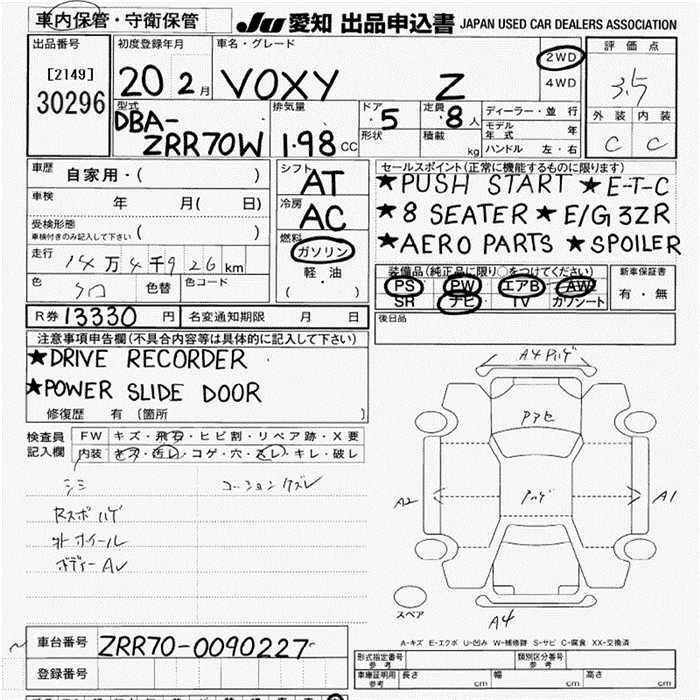 車内保管・守衛保管
JU 愛知 出品申込書 JAPAN USED CAR DEALERS ASSOCIATION
出品番号
[2149]
30296
初度登録年月
20 2月
車名・グレード
VOXY Z
2WD
4WD
評価点
3.5
外装 内装
C C
型式
DBA-
ZRR70W
排気量
1.98 CC
ドア
5
形状
定員
8人
積載
kg
ディーラー・並行
モデル年式 年
ハンドル 左・右
車歴 自家用・( )
車検 年 月( 日)
受検形態
車検付きのみ記入して下さい ( )
走行 14万4千926km
色 シロ 色替 色コード
シフト
AT
冷房
AC
燃料
ガソリン
軽・油
( )
セールスポイント(正常に機能するものに限ります)
★PUSH START ★E-T-C
★8 SEATER ★E/G 3ZR
★AERO PARTS ★SPOILER
装備品(純正品に限り○をつけてください)
PS PW エアB AW
SR ナビ TV カワシート
新車保証書
有・無
後日品
R券 13330円 名変通知期限 月 日
注意事項申告欄(不具合内容等は具体的に記入して下さい)
★DRIVE RECORDER
★POWER SLIDE DOOR
修復歴 有 〔箇所 〕
検査員 FW キズ・飛石・ヒビ割・リペア跡・X要
記入欄 内装 キズ・汚レ・コゲ・穴・スレ・キレ・破レ
シミ
Rスポハゲ
外ホイール
ボディーAレ
A4
Pアセ
A2
A1
A4
スペア
A-キズ E-エクボ U-凹み W-補修跡 S-サビ C-腐食 XX-交換済
車台番号 ZRR70-0090227
登録番号
形式指定番号
参考
類別区分番号
参考
車庫証明用
参考
長さ cm 幅 cm 高さ cm